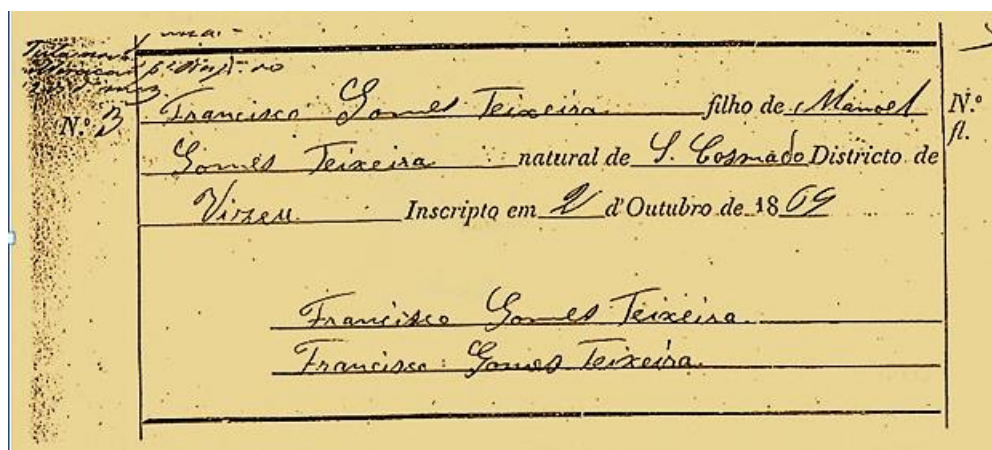 N.º 3
Francisco Gomes Teixeira filho de Manoel
Gomes Teixeira natural de S. Cosmado Districto de
Vizeu Inscripto em 2 d'Outubro de 1869
Francisco Gomes Teixeira
Francisco Gomes Teixeira
N.º
fl.